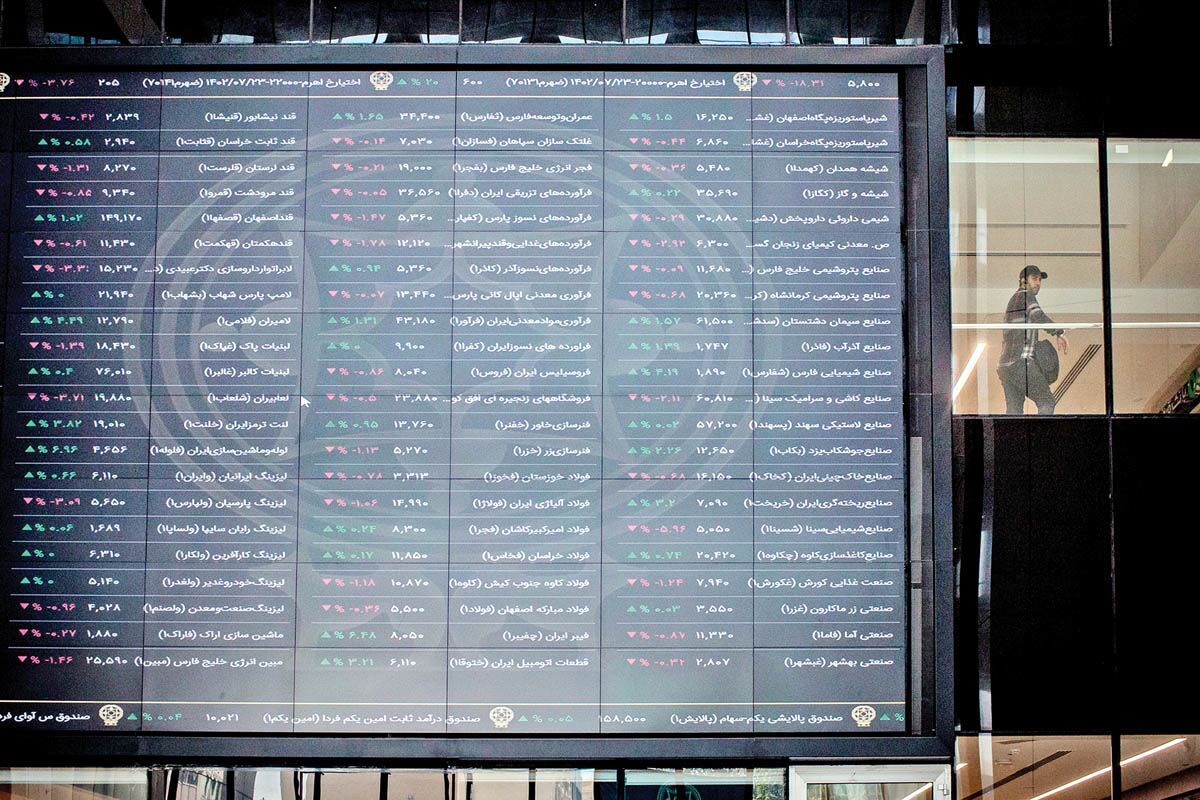 ۵,۸۰۰ -۱۸.۳۱ % ▼ اختیارخ اهرم-۲۰۰۰۰-۱۴۰۲/۰۷/۲۳ (ضهرم۷۰۱۳۱) ۶۰۰ ۲۰ % ▲ اختیارخ اهرم-۲۲۰۰۰-۱۴۰۲/۰۷/۲۳ (ضهرم۷۰۱۴۱) ۲۰۵ -۳.۷۶ % ▼
شیرپاستوریزه‌پگاه‌اصفهان (غش... ۱۶,۲۵۰ ۱.۵ % ▲ عمران‌وتوسعه‌فارس (ثفارس۱) ۳۴,۴۰۰ ۱.۶۵ % ▲ قند نیشابور (قنیشا۱) ۲,۸۳۹ -۰.۴۲ % ▼
شیرپاستوریزه‌پگاه‌خراسان (غشا... ۶,۸۶۰ -۰.۴۴ % ▼ غلتک سازان سپاهان (فسازان۱) ۷,۰۳۰ -۰.۱۴ % ▼ قند ثابت خراسان (قثابت۱) ۲,۹۴۰ ۰.۵۸ % ▲
شیشه همدان (کهمدا۱) ۵,۴۸۰ -۰.۳۶ % ▼ فجر انرژی خلیج فارس (بفجر۱) ۱۹,۰۰۰ -۰.۲۱ % ▼ قند لرستان (قلرست۱) ۸,۲۷۰ -۱.۳۱ % ▼
شیشه و گاز (کگاز۱) ۳۵,۶۹۰ ۰.۲۲ % ▲ فرآورده‌های تزریقی ایران (دفرا۱) ۳۶,۵۶۰ -۰.۰۵ % ▼ قند مرودشت (قمرو۱) ۹,۳۴۰ -۰.۸۵ % ▼
شیمی داروئی داروپخش (دشی... ۳۰,۸۸۰ -۰.۲۹ % ▼ فرآورده‌های نسوز پارس (کفپار... ۵,۳۶۰ -۱.۴۷ % ▼ قنداصفهان (قصفها۱) ۱۴۹,۱۷۰ ۱.۰۲ % ▲
ص. معدنی کیمیای زنجان گس... ۶,۳۰۰ -۲.۹۲ % ▼ فرآورده‌های‌غذایی‌وقندپیرانشهر... ۱۲,۱۲۰ -۱.۷۸ % ▼ قندهکمتان (قهکمت۱) ۱۱,۴۳۰ -۰.۶۱ % ▼
صنایع پتروشیمی خلیج فارس (... ۱۱,۶۸۰ -۰.۰۹ % ▼ فرآورده‌های‌نسوزآذر (کاذر۱) ۵,۳۶۰ ۰.۹۴ % ▲ لابراتوارداروسازی دکترعبیدی (د... ۱۵,۲۳۰ % ▼
صنایع پتروشیمی کرمانشاه (کر... ۲۰,۳۶۰ -۰.۶۸ % ▼ فرآوری معدنی اپال کانی پارس... ۱۳,۴۴۰ -۰.۰۷ % ▼ لامپ پارس شهاب (بشهاب۱) ۲۱,۹۴۰ ۰ % ▲
صنایع سیمان دشتستان (سدش... ۶۱,۵۰۰ ۱.۵۷ % ▲ فرآوری‌موادمعدنی‌ایران (فرآور۱) ۴۳,۱۸۰ ۱.۳۱ % ▲ لامیران (فلامی۱) ۱۲,۷۹۰ ۴.۴۹ % ▲
صنایع آذرآب (فاذر۱) ۱,۷۴۷ ۱.۳۹ % ▲ فراورده های نسوزایران (کفرا۱) ۹,۹۰۰ ۰ % ▲ لبنیات پاک (غپاک۱) ۱۸,۴۳۰ -۱.۳۹ % ▼
صنایع شیمیایی فارس (شفارس۱) ۱,۸۹۰ ۴.۱۹ % ▲ فروسیلیس ایران (فروس۱) ۸,۰۴۰ -۰.۸۶ % ▼ لبنیات کالبر (غالبر۱) ۷۶,۰۱۰ ۰.۴ % ▲
صنایع کاشی و سرامیک سینا (... ۶۰,۸۱۰ -۲.۱۱ % ▼ فروشگاههای زنجیره ای افق کو... ۲۳,۸۸۰ -۰.۵ % ▼ لعابیران (شلعاب۱) ۱۹,۸۸۰ -۳.۷۱ % ▼
صنایع لاستیکی سهند (پسهند۱) ۵۷,۲۰۰ ۰.۰۲ % ▲ فنرسازی‌خاور (خفنر۱) ۱۳,۷۶۰ ۰.۹۵ % ▲ لنت ترمزایران (خلنت۱) ۱۹,۰۱۰ ۳.۸۲ % ▲
صنایع‌جوشکاب‌یزد (بکاب۱) ۱۲,۶۵۰ ۲.۲۶ % ▲ فنرسازی‌زر (خزر۱) ۵,۲۷۰ -۱.۱۳ % ▼ لوله‌وماشین‌سازی‌ایران (فلوله۱) ۴,۶۵۶ ۶.۹۶ % ▲
صنایع‌خاک‌چینی‌ایران (کخاک۱) ۱۶,۱۵۰ -۰.۶۸ % ▼ فولاد خوزستان (فخوز۱) ۳,۳۱۳ -۰.۷۸ % ▼ لیزینگ ایرانیان (وایران۱) ۶,۱۱۰ ۰.۶۶ % ▲
صنایع‌ریخته‌گری‌ایران (خریخت۱) ۷,۰۹۰ ۳.۲ % ▲ فولاد آلیاژی ایران (فولاژ۱) ۱۴,۹۹۰ -۱.۰۶ % ▼ لیزینگ پارسیان (ولپارس۱) ۵,۶۵۰ -۳.۰۹ % ▼
صنایع‌شیمیایی‌سینا (شسینا۱) ۵,۰۵۰ -۵.۹۶ % ▼ فولاد امیرکبیرکاشان (فجر۱) ۸,۳۰۰ ۰.۲۴ % ▲ لیزینگ رایان سایپا (ولساپا۱) ۱,۶۸۹ ۰.۰۶ % ▲
صنایع‌کاغذسازی‌کاوه (چکاوه۱) ۲۰,۴۲۰ ۰.۷۴ % ▲ فولاد خراسان (فخاس۱) ۱۱,۸۵۰ ۰.۱۷ % ▲ لیزینگ کارآفرین (ولکار۱) ۶,۳۱۰ ۰ % ▲
صنعت غذایی کورش (غکورش۱) ۷,۹۴۰ -۱.۲۴ % ▼ فولاد کاوه جنوب کیش (کاوه۱) ۱۰,۸۷۰ -۱.۱۸ % ▼ لیزینگ‌خودروغدیر (ولغدر۱) ۵,۱۴۰ ۰ % ▲
صنعتی زر ماکارون (غزر۱) ۳,۵۵۰ ۰.۰۳ % ▲ فولاد مبارکه اصفهان (فولاد۱) ۵,۵۰۰ -۰.۳۶ % ▼ لیزینگ‌صنعت‌ومعدن (ولصنم۱) ۴,۰۲۸ -۰.۹۶ % ▼
صنعتی آما (فاما۱) ۱۱,۳۳۰ -۰.۸۷ % ▼ فیبر ایران (چفیبر۱) ۸,۰۵۰ ۶.۴۸ % ▲ ماشین سازی اراک (فاراک۱) ۱,۸۸۰ -۰.۲۷ % ▼
صنعتی بهشهر (غبشهر۱) ۲,۸۰۷ -۰.۳۲ % ▼ قطعات اتومبیل ایران (ختوقا۱) ۶,۱۱۰ ۳.۲۱ % ▲ مبین انرژی خلیج فارس (مبین۱) ۲۵,۵۹۰ -۱.۴۶ % ▼
% ▲ صندوق پالایشی یکم-سهام (پالایش۱) ۱۵۸,۵۰۰ ۰.۰۵ % ▲ صندوق درآمد ثابت امین یکم فردا (امین یکم۱) ۱۰,۰۲۱ ۰.۰۴ % ▲ صندوق س آوای فرد